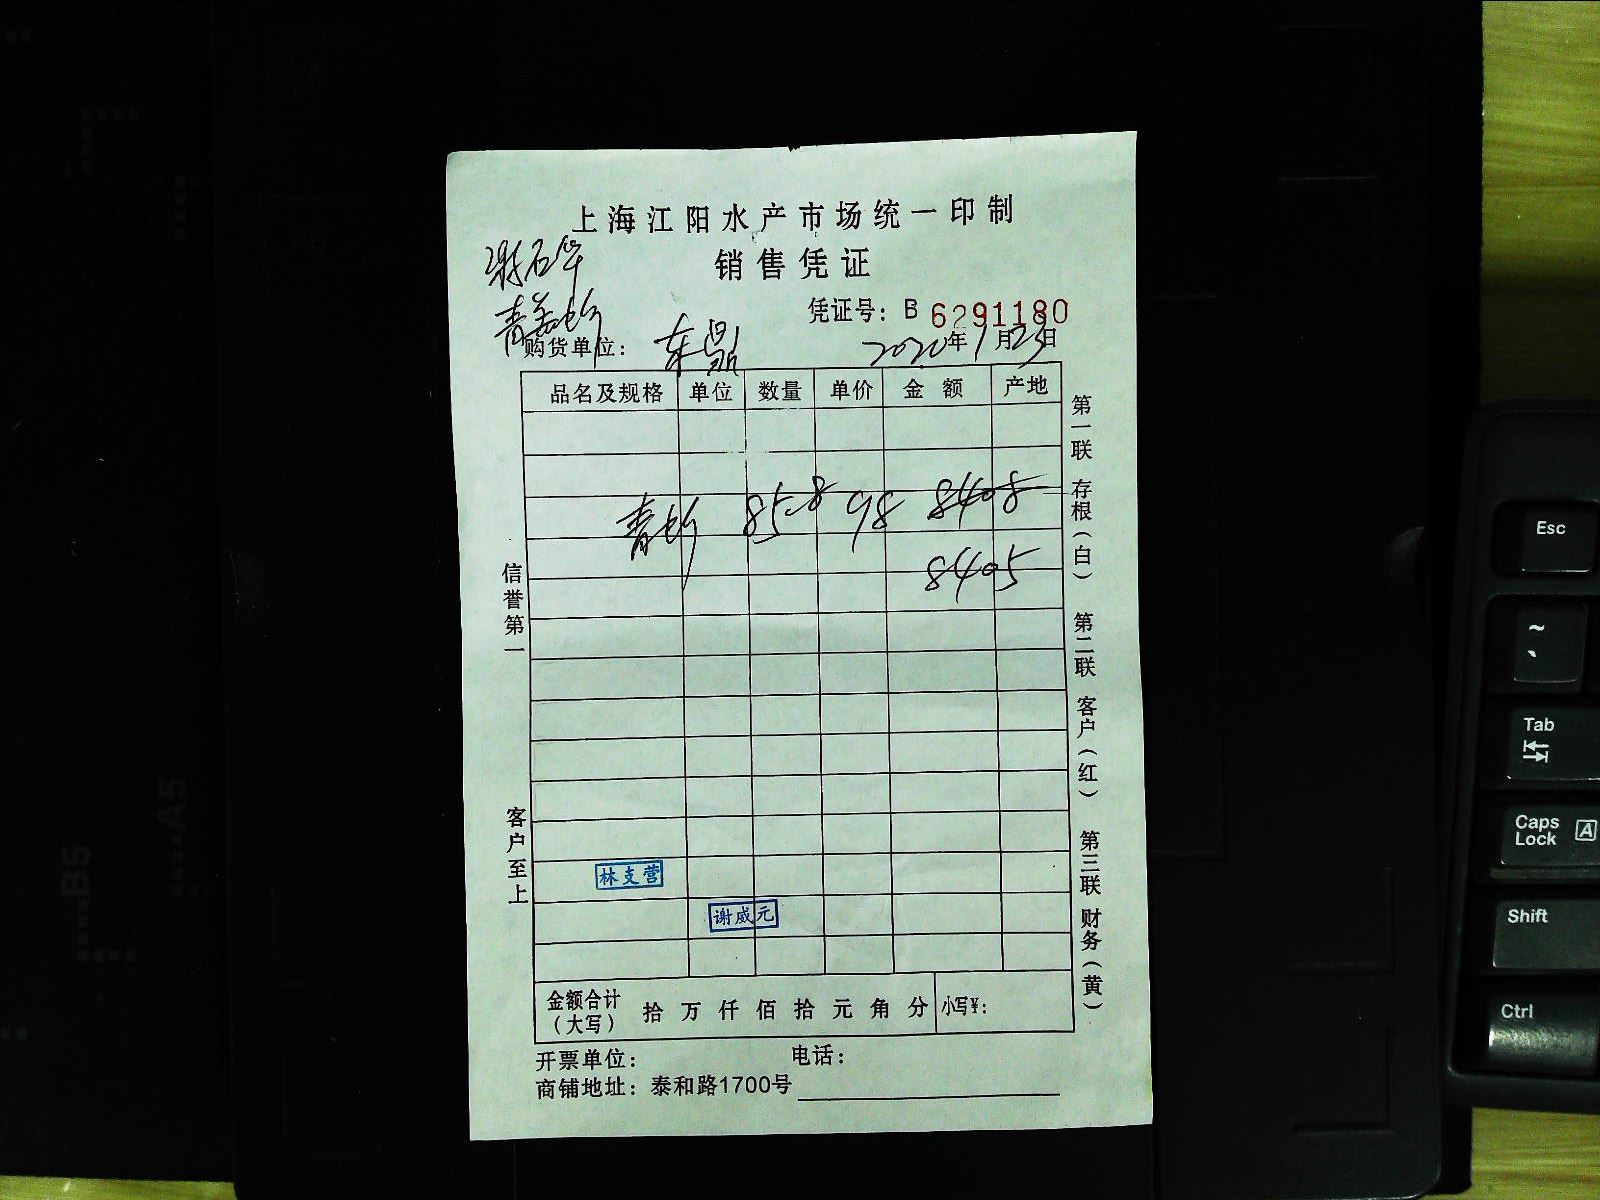 上海江阳水产市场统一印制
销售凭证
凭证号：B 6291180
购货单位：东鼎
2020年1月23日
品名及规格 单位 数量 单价 金额 产地
青 85.8 98 8408
8405
林支营
谢威元
金额合计（大写） 拾 万 仟 佰 拾 元 角 分 小写¥：
开票单位： 电话：
商铺地址：泰和路1700号
信誉第一
客户至上
第一联 存根（白） 第二联 客户（红） 第三联 财务（黄）
Esc
~
`
Tab
Caps Lock A
Shift
Ctrl
B5
A5